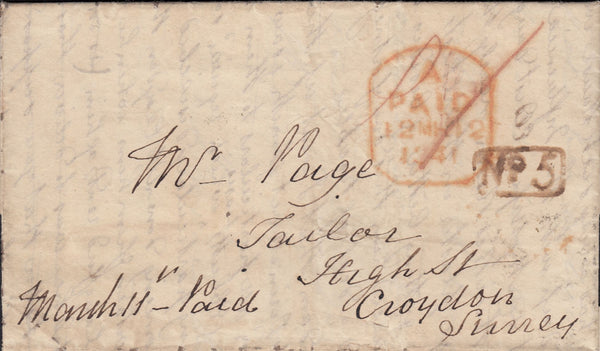 A
PAID
12MR12
1841
No 5
Mr Page
Tailor
High St
Croydon
Surrey
March 11th Paid